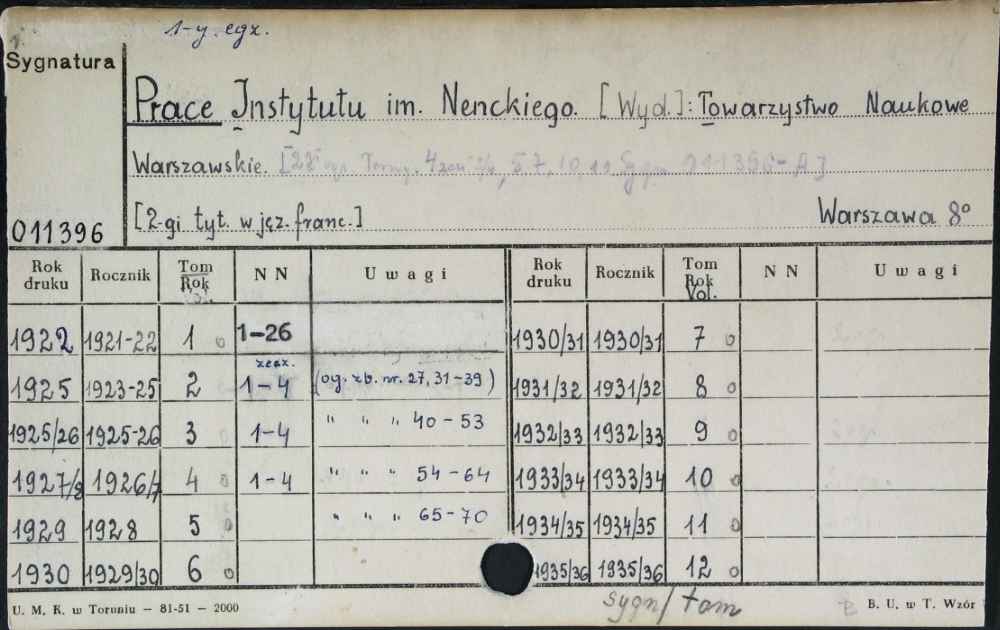 1-y. egz.
Sygnatura
Prace Instytutu im. Nenckiego. [Wyd.]: Towarzystwo Naukowe
Warszawskie.
[2-gi tyt. w jęz. franc.] Warszawa 8°
011396
Rok druku Rocznik Tom Rok Vol. N N Uwagi Rok druku Rocznik Tom Rok Vol. N N Uwagi
1922 1921-22 1 o 1-26 1930/31 1930/31 7 o
zesz.
1925 1923-25 2 1-4 (og. zb. nr. 27, 31-39) 1931/32 1931/32 8 o
1925/26 1925-26 3 1-4 " " " 40-53 1932/33 1932/33 9 o
1927/8 1926/7 4 o 1-4 " " " 54-64 1933/34 1933/34 10 o
1929 1928 5 o " " " 65-70 1934/35 1934/35 11 o
1930 1929/30 6 o 1935/36 1935/36 12 o
sygn/tom
U. M. K. w Toruniu – 81-51 – 2000 B. U. w T. Wzór